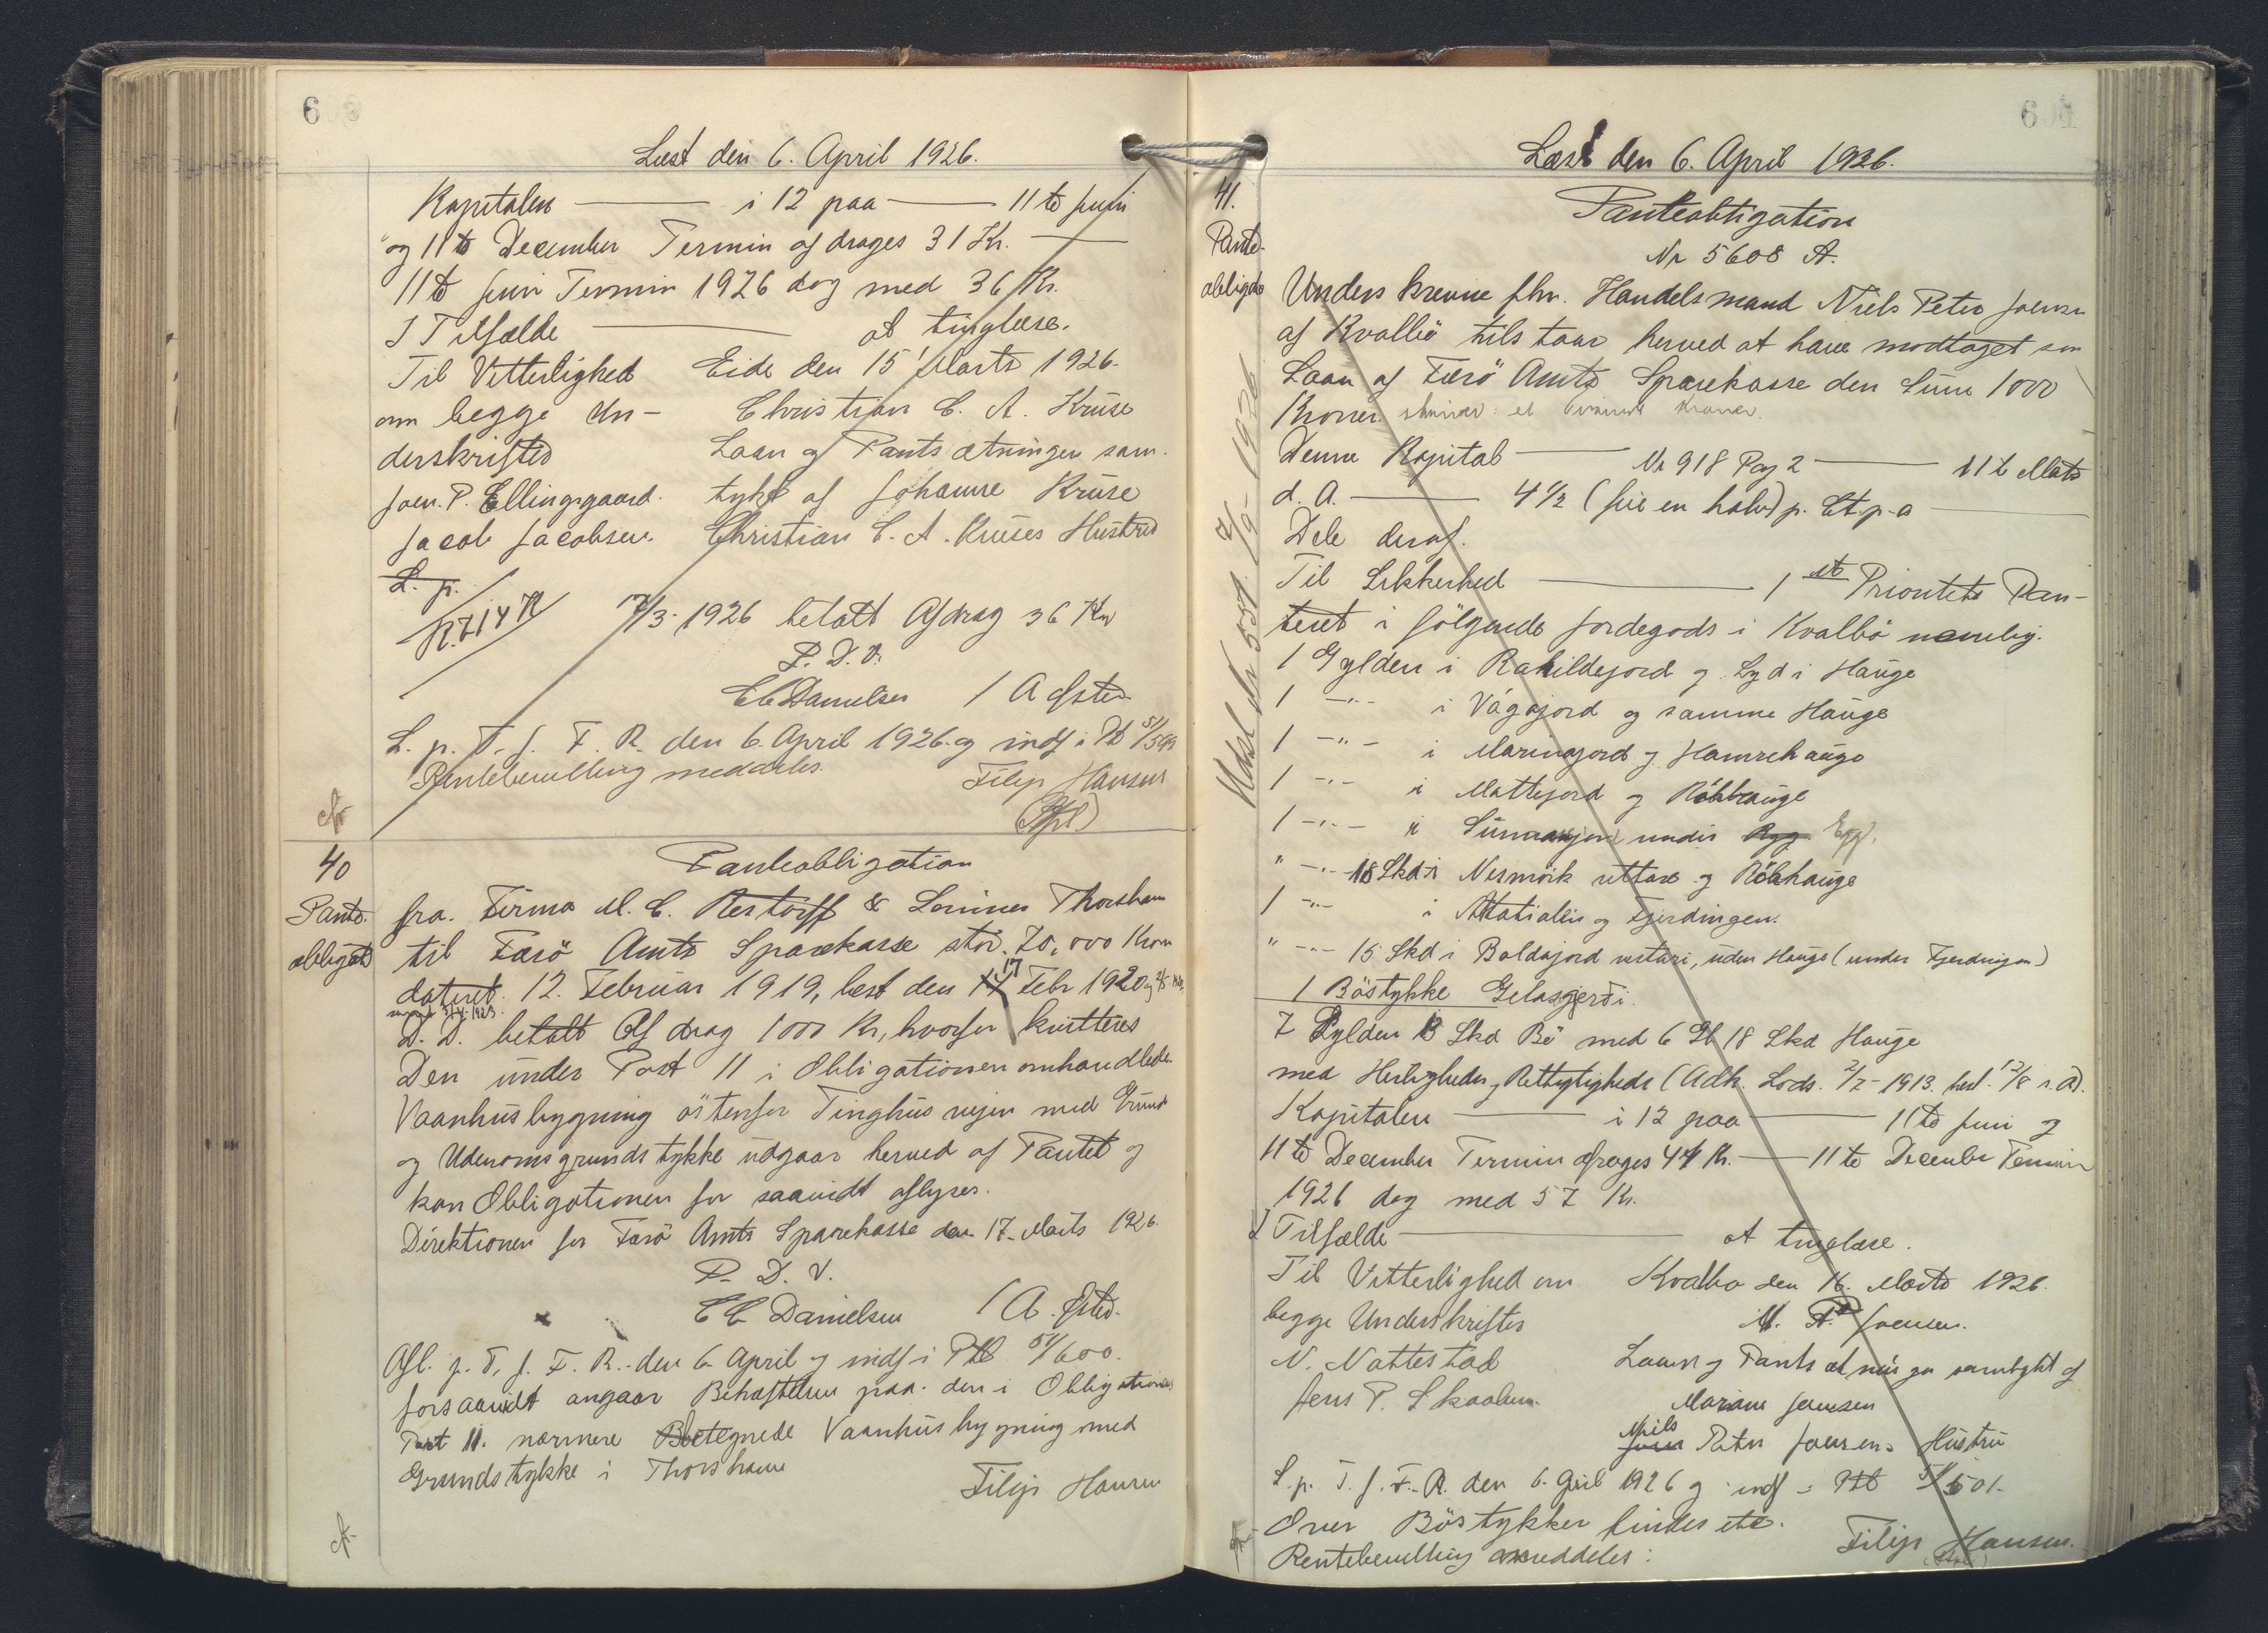 6
Læst den 6. April 1926.
Kapitalen — i 12 paa — 11te Juni
og 11te December Termin afdrages 31 Kr. —
11te Juni Termin 1926 dog med 36 Kr.
I Tilfælde — at tinglæse.
Til Vitterlighed Eide den 15 Marts 1926.
om begge Un- Christian C. A. Kruse
derskrifter Laan og Pantsætningen sam-
Joen. P. Ellingsgaard. tykt af Johanne Kruse
Jacob Jacobsen. Christian C. A. Kruses Hustru
L. p.
R. 714 R
17/3. 1926 betalt Afdrag 36 Kr
P. D. V.
CC Danielsen / A Østerø
L. p. T. f. F. R. den 6. April 1926. og indf i Pb 51/599
Rentebevilling meddeles. Filip Hansen
(Gfl)
cfr
40
Pante-
obligat
Panteobligation
fra. Firma M. C. Restorff & Sönner Thorshavn
til Færö Amts Sparekasse stor. 70,000 Kron
dateret. 12. Februar 1919, læst den 17 Febr 1920
D. D. betalt Afdrag 1000 Kr, hvorfor kvitteres
Den under Post 11 i Obligationen omhandlede
Vaanhusbygning östenfor Tinghusvejen med Grund
og Udenomsgrundstykke udgaar herved af Pantet og
kan Obligationen for saavidt aflyses.
Direktionen for Færö Amts Sparekasse den 17. Marts 1926.
P. D. V.
CC Danielsen / A. Østerø.
Afl. p. T. f. F. R. den 6. April og indf i Ptb 51/600.
forsaavidt angaar Behæftelsen paa. den i Obligationens
Post 11. nærmere Betegnede Vaanhusbygning med
Grundstykke i Thorshavn
Filip Hansen
cfr
601
Læst den 6. April 1926.
41.
Pante-
obligat
Panteobligation
Nr 5608 A.
Underskrevne fhv. Handelsmand Niels Peter Joensen
af Kvalbö tilstaar herved at have modtaget som
Laan af Færö Amts Sparekasse den Sum 1000
Kroner. skriver: et Tusinde Kroner.
Denne Kapital — Nr 918 Pag 2 — 11te Marts
d. A. — 4 1/2 (fire en halv) p. Ct. p. a —
Dele deraf.
Til Sikkerhed — 1ste Prioritets Pan-
teret i fölgende Jordegods i Kvalbö nemlig.
1 Gylden i Rakildejord og Syd i Hauge
1 —"— i Vágajord og samme Hauge
1 —"— i Marinajord og Hamrehauge
1 —"— i Mattejord og Rókhauge
1 —"— i under Egg.
" —"— 18 Skd i Nesmörk uttare og Rókhauge
1 —"— i og Fjerdingen.
" —"— 15 Skd i Baldajord vestari, uden Hauge (under Fjerdingen)
1 Böstykke Gelasgerdi.
7 Gylden 13 Skd Bö med 6 Gl 18 Skd Hauge
med Herligheder, Rettigheder (Adk. Lods. 2/7-1913. læst. 12/8 s. A).
Kapitalen — i 12 paa — 11te Juni og
11te December Termin afdrages 44 Kr. — 11te December Termin
1926 dog med 57 Kr.
I Tilfælde — at tinglæse.
Til Vitterlighed om Kvalbø den 16. Marts 1926.
begge Underskrifter N. P. Joensen.
N. Nattestad Laan og Pantsætningen samtykt af
Jens P. Skaalum. Mariane Joensen
Niels Peter Joensens Hustru
L. p. T. f. F. R. den 6. April 1926 og indf i Ptb 51/601.
Over Böstykker findes etc.
Rentebevilling meddeles: Filip Hansen.